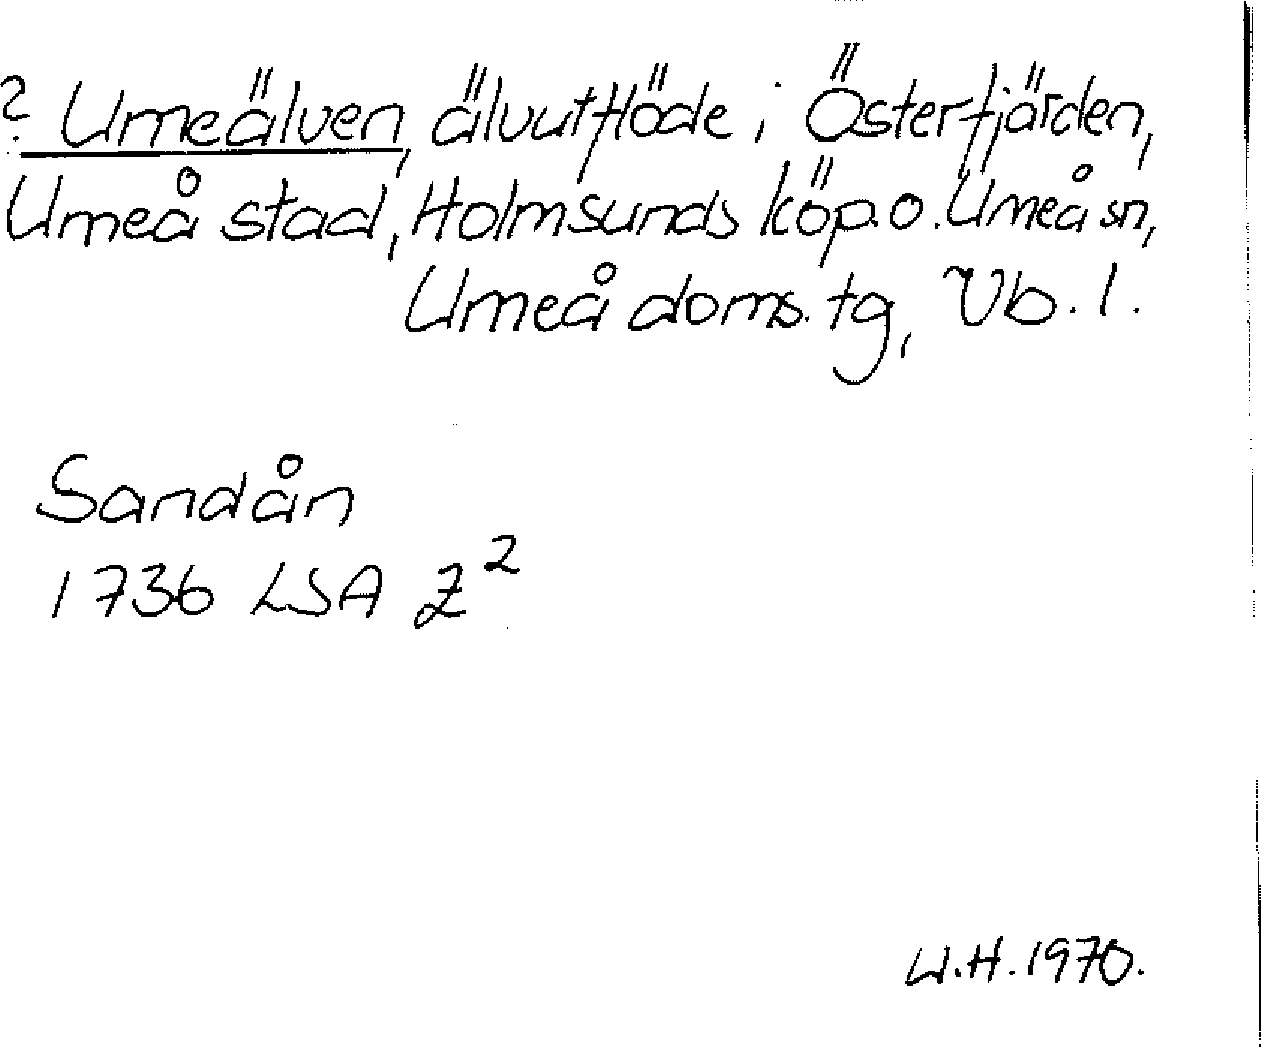 ? Umeälven, älvutflöde i Österfjärden,
Umeå stad, Holmsunds köp. o. Umeå sn,
Umeå doms. tg, Vb. l.
Sandån
1736 LSA Z²
W.H. 1970.